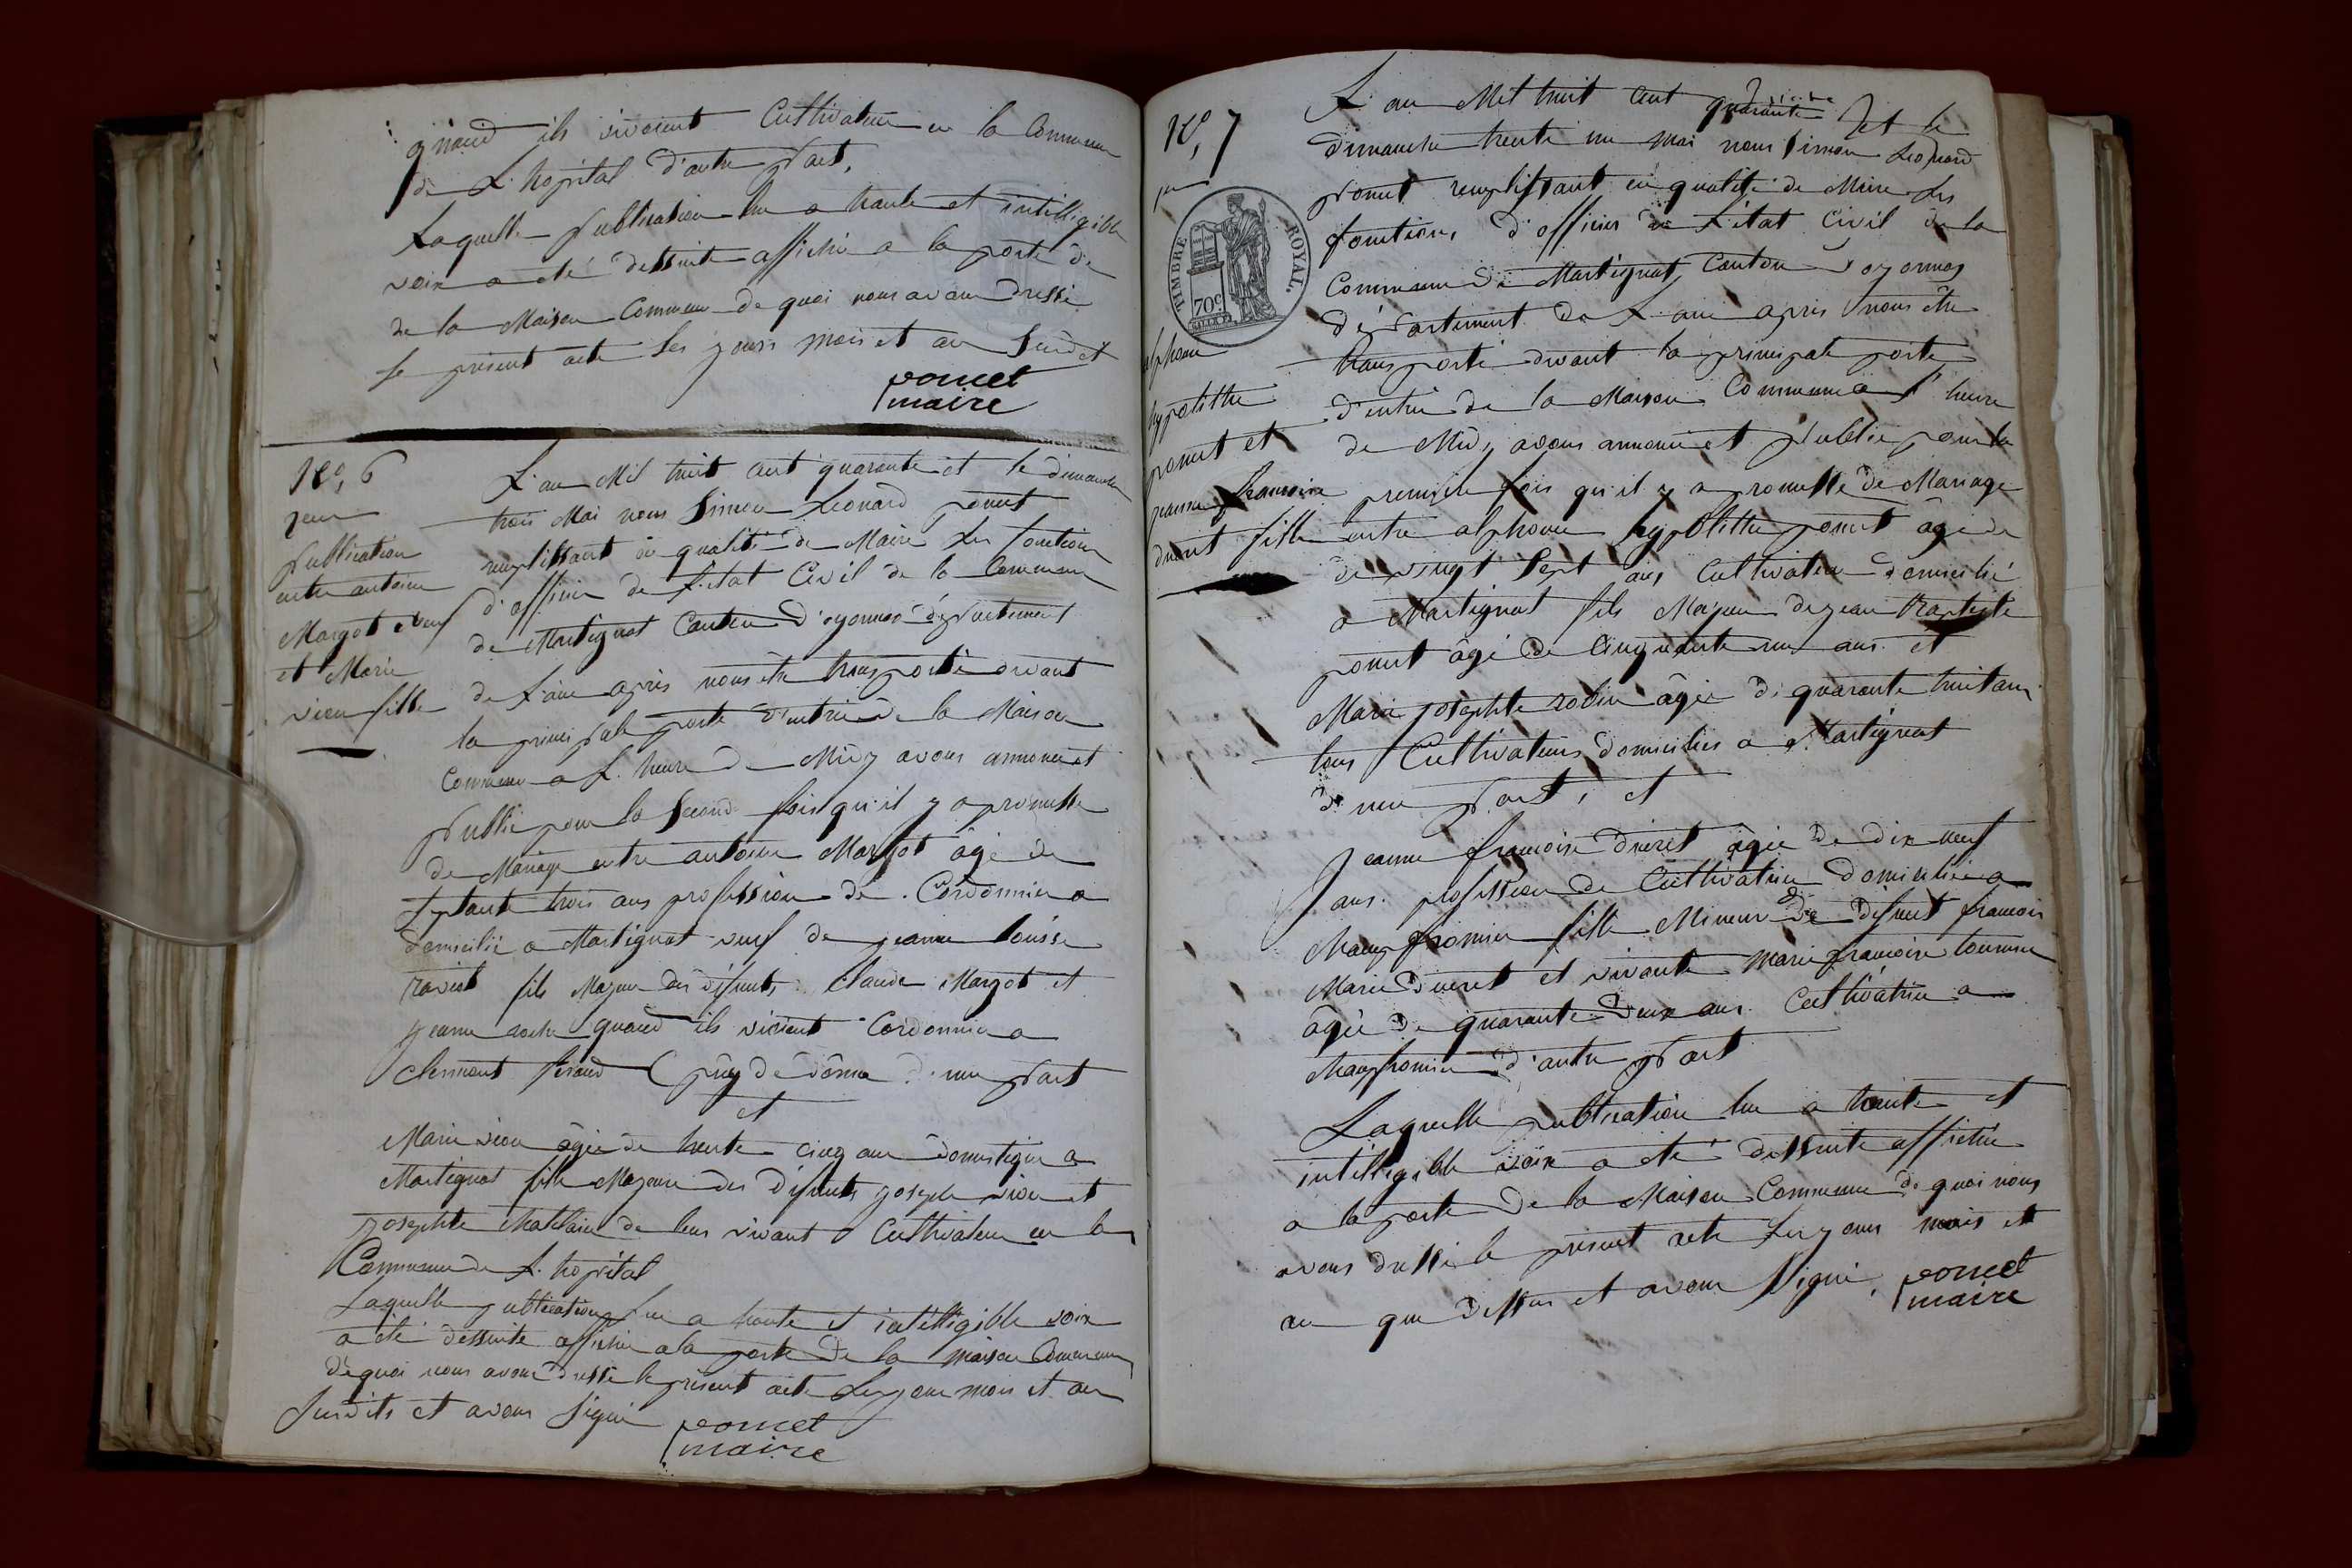 quand ils vivoient Cultivateur en la Commune
de L'hopital d'autre Part,
Laquelle Publication lue a haute et intelligible
voix a été dessuite affiché a la porte de
de la Maison Commune de quoi nous avons dressé
le présent acte les jours mois et an Susdit
poncet
maire
No, 6
Publication
entre antoine
Margot veuf
et Marie
vion fille
L'an Mil huit cent quarante et le dimanche
trois Mai nous Simon Leonard poncet
remplissant en qualité de Maire Les fonctions
d'officier de L'état Civil de la Commune
de Martignat Canton d'oyonnas département
de L'ain après nous être transporté devant
la principale porte d'entrée de la Maison
Commune a L'heure de Midy avons annoncé et
Publié pour la Seconde fois qu'il y a promesse
de Mariage entre antoine Margot âgé de
septante trois ans profession de Cordonnier a
domicilié a Martignat veuf de jeanne Louise
fils Majeur des défunts Claude Margot et
jeanne roche quand ils vivient Cordonnier a
clermont feraud (puy de dôme d'une Part
et
Marie vion âgée de trente cinq ans domestique a
Martignat fille Majeure des défunts joseph vion et
josephte Chatelain de leur vivant Cultivateur en la
Commune de L'hopital
Laquelle publication lue a haute et intelligible voix
a été dessuite affiché a la porte de la maison Commune
de quoi nous avons dressé le présent acte Les jour mois et an
Susdits et avons Signé
poncet
maire
No, 7
TIMBRE ROYAL.
70c
alphonse
hypolithe
poncet et
jeanne francoise
druet fille
L'an Mil huit Cent quarante et le
dimanche trente un Mai nous Simon Leonard
poncet remplissant en qualité de Maire Les
fonctions d'officier de L'état Civil de la
Commune de Martignat, Canton d'oyonnas
département de L'ain après nous être
transporté devant la principale porte
d'entrée de la Maison Commune a L'heure
de Midy avons annoncé et Publié pour la
première fois qu'il y a promesse de Mariage
entre alphonse hypolithe poncet âgé de
de vingt Sept ans Cultivateur domicilié
a Martignat fils Majeur de jean Baptiste
poncet âgé de Cinquante un ans et
Marie josephte robin âgée de quarante huit ans
tous Cultivateurs domiciliés a Martignat
d'une Part, et
Jeanne francoise druet âgée de dix neuf
ans profession de Cultivatrice domiciliée a
fille Mineure de défunt francois
Marie druet et vivante marie francoise tournier
âgée de quarante deux ans Cultivatrice a
d'autre Part
Laquelle publication lue a haute et
intelligible voix a été dessuite affichée
a la porte de la Maison Commune de quoi nous
avons dressé le présent acte Les jours mois et
an que dessus et avons Signé,
poncet
maire